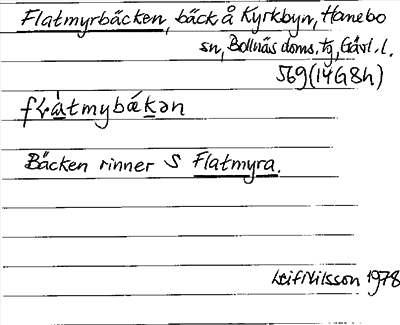 Flatmyrbäcken, bäck å Kyrkbyn, Hanebo
sn, Bollnäs doms. tg, Gävl. l.
569 (14G8h)
fḷàtmybǽkən
Bäcken rinner S Flatmyra.
Leif Nilsson 1978